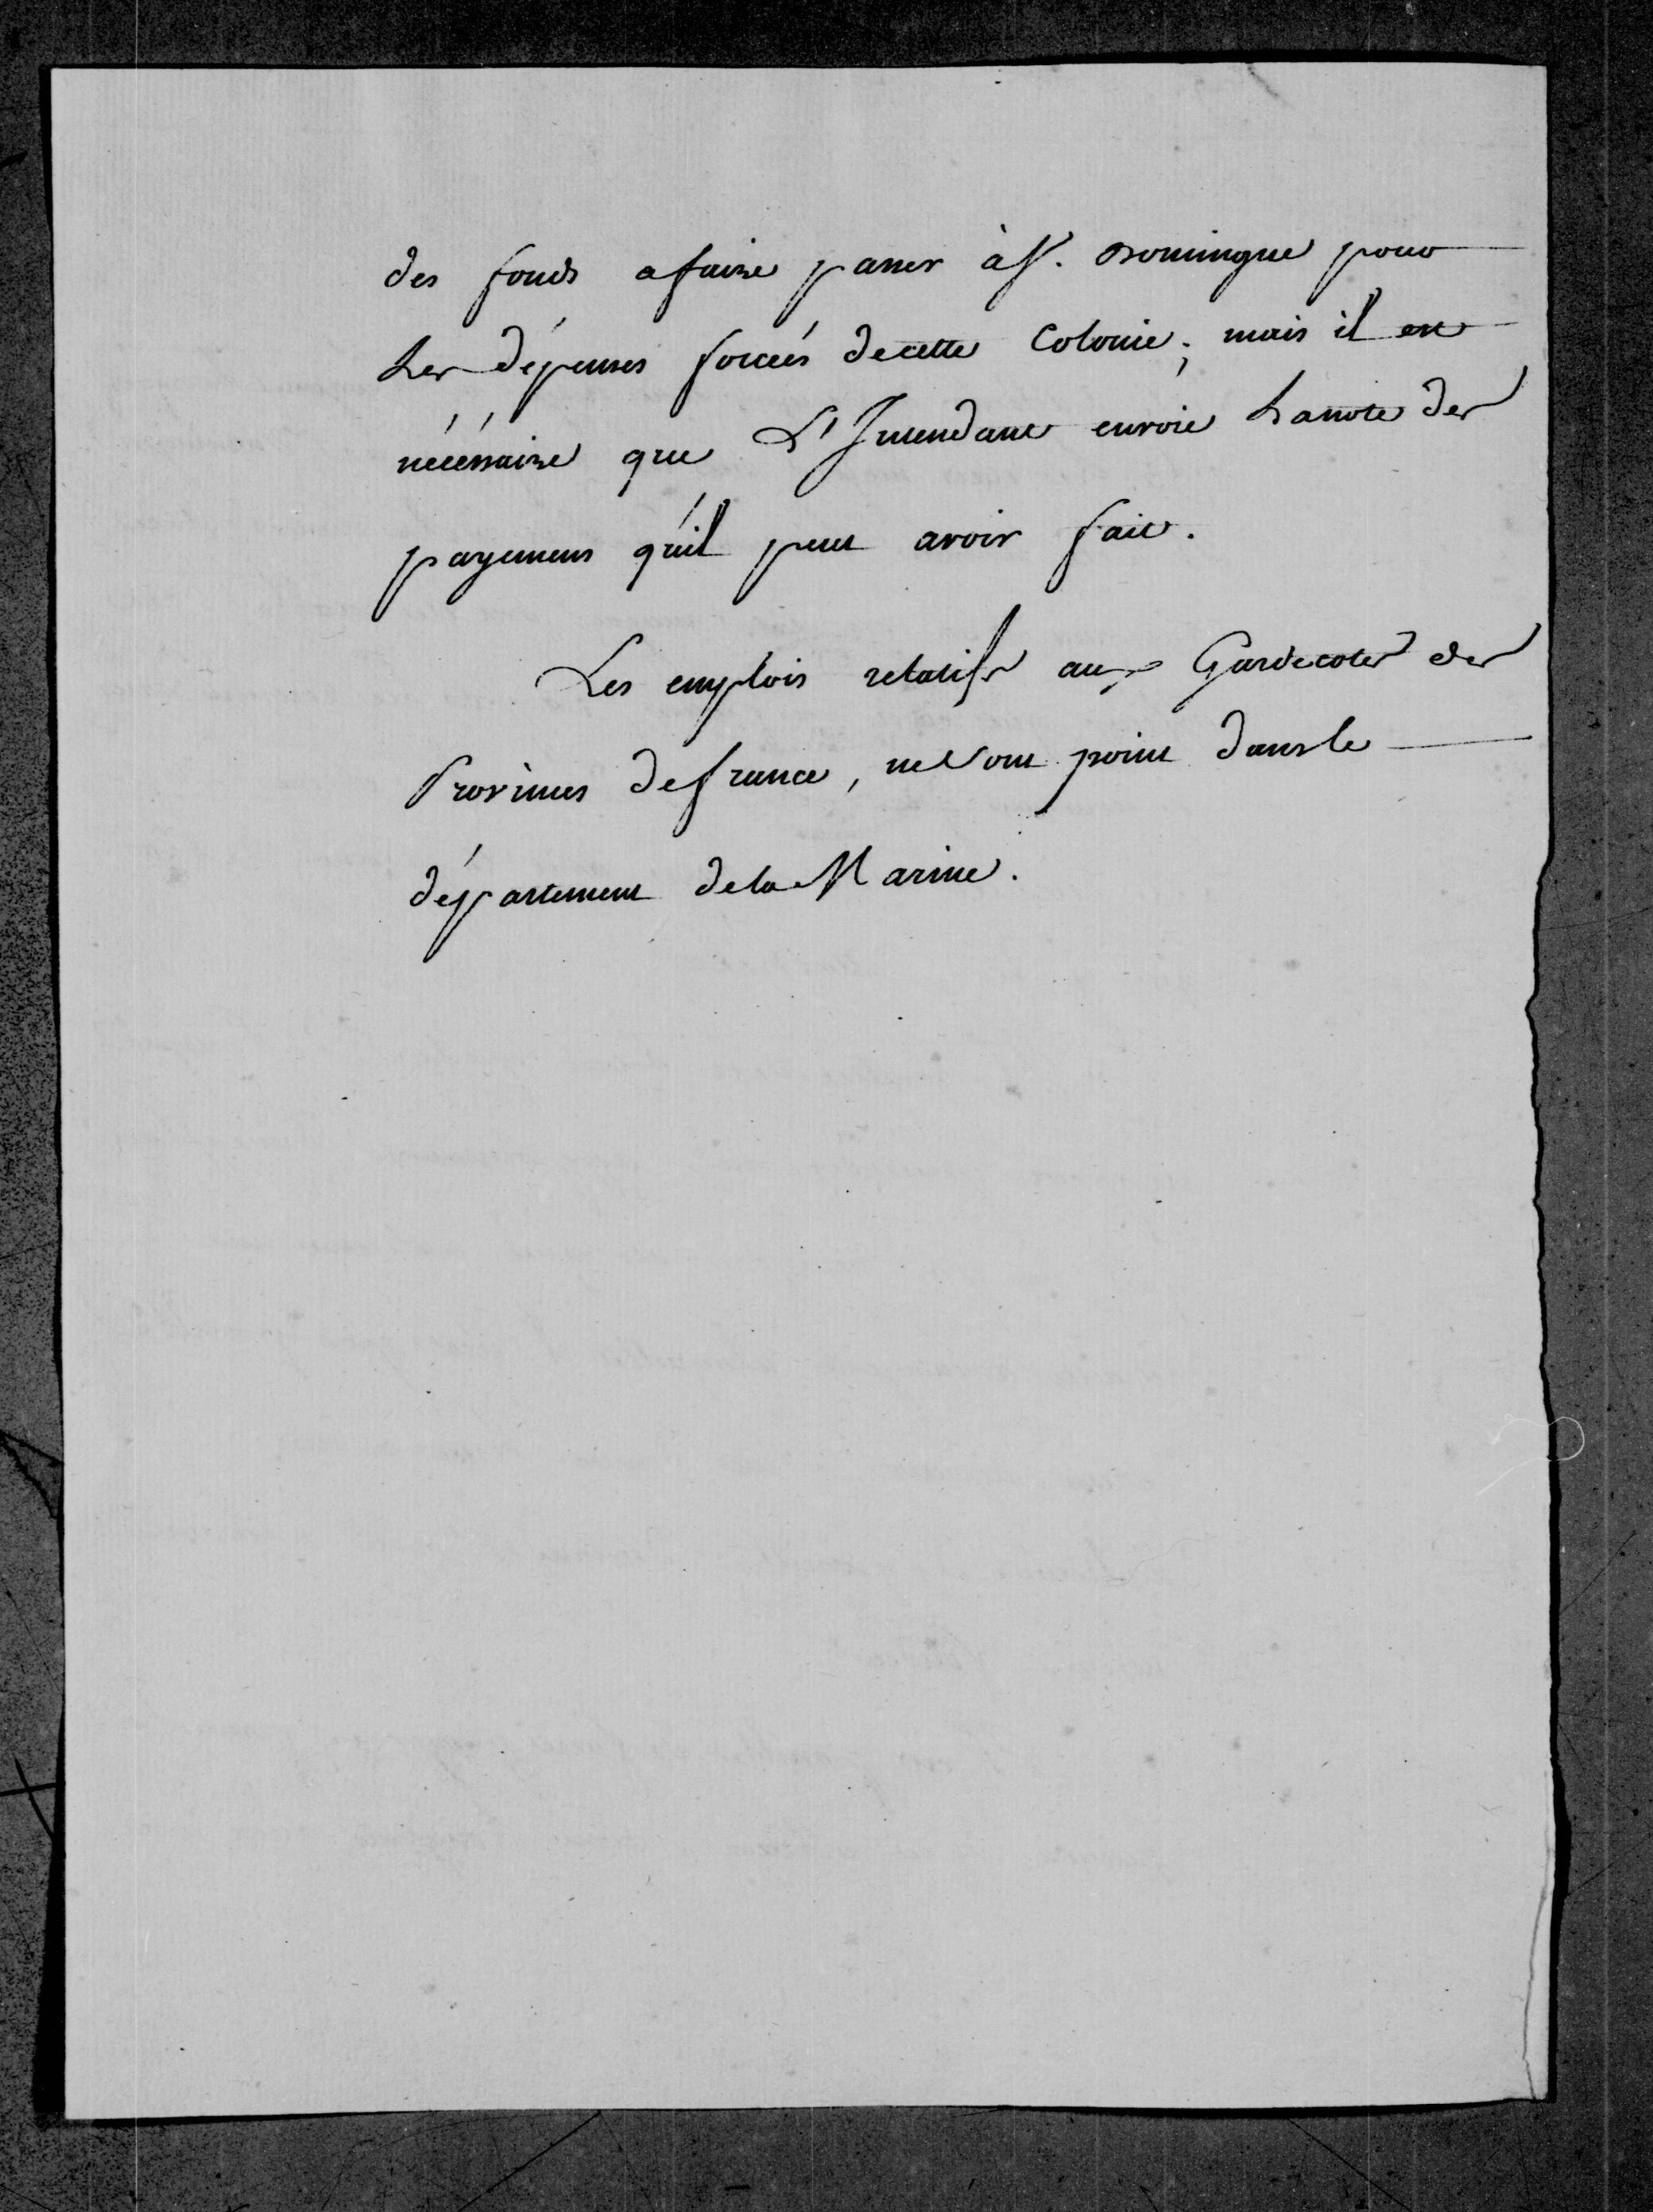 des fonds a faire passer à S.t Domingue pour
Les dépenses forcées de cette Colonie; mais il est
nécéssaire que L'Intendant envoie La note des
payemens qu'il peut avoir fait.
Les emplois relatifs aux Gardecotes des
Provinces de france, ne sont point dans le
département de la Marine.